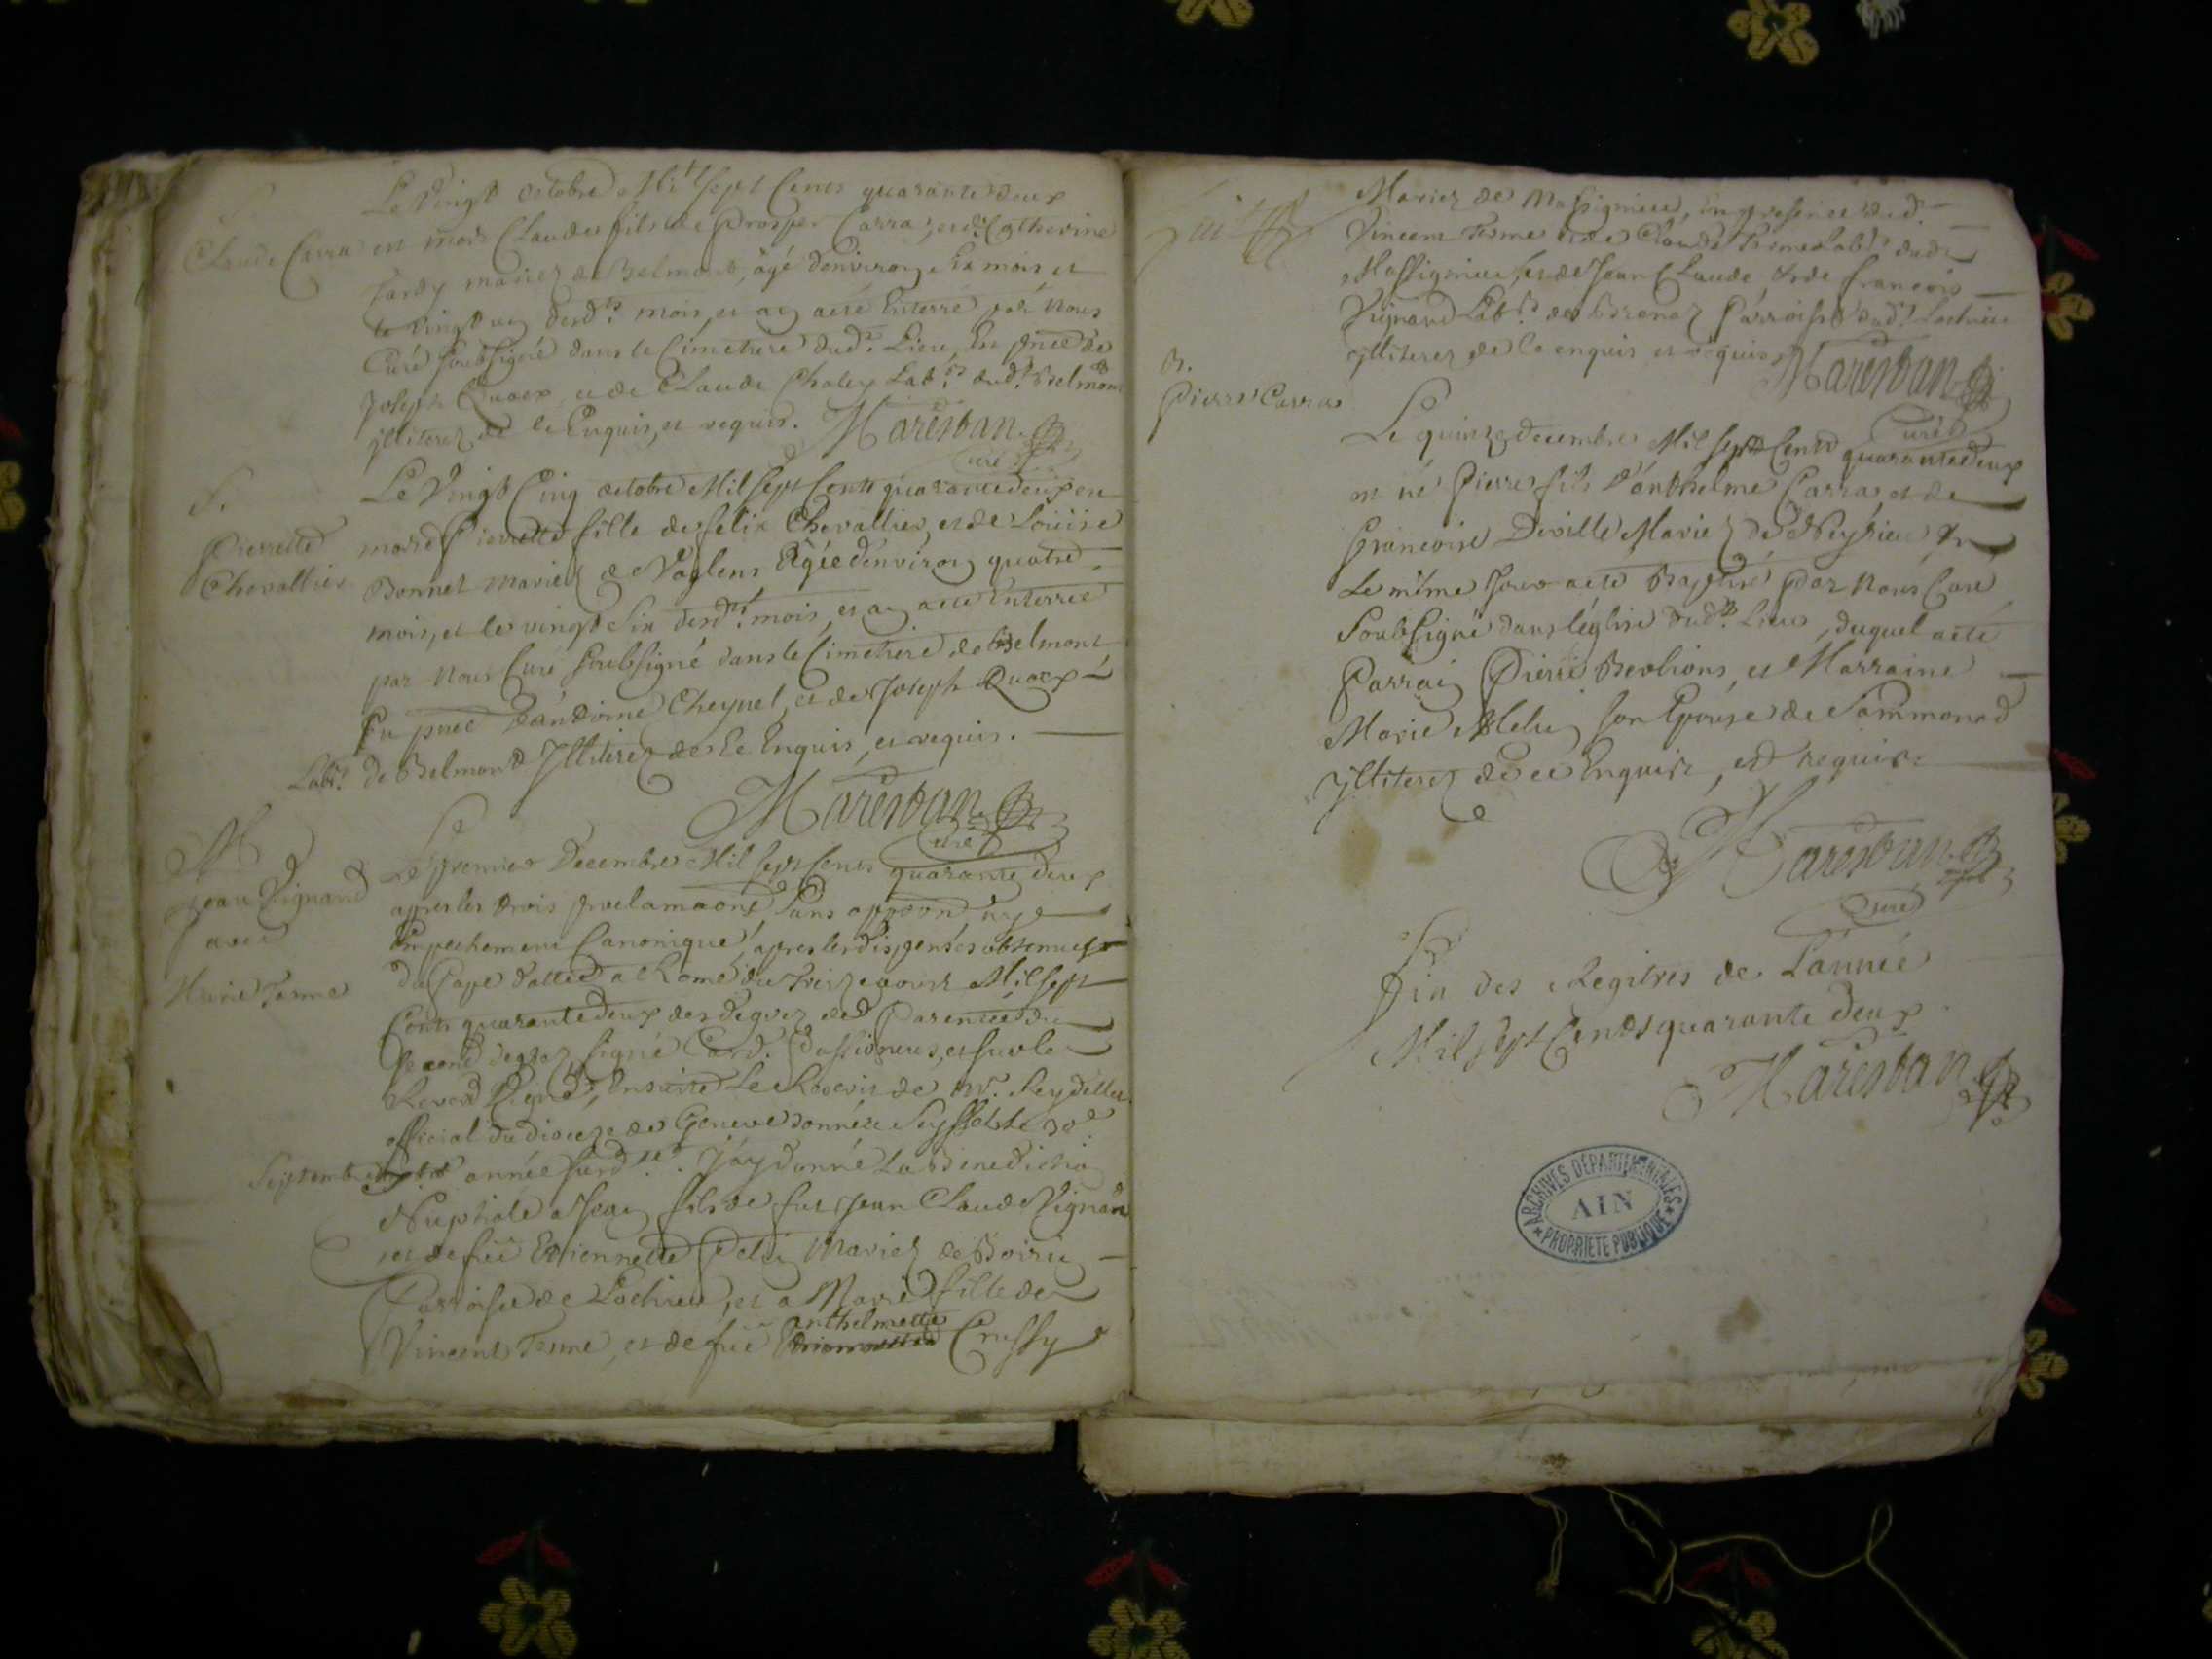 Le Vingt octobre Mil sept Cents quarante deux
S.
Claude Carra est mort Claude fils de Prosper Carra, et de Catherine
Tardy mariez de Belmont, âgé denviron six mois et
le vingt un dud.t mois, et an a eté Enterré par Nous
Curé soubsigné dans le Cimetiere dud.t Lieu, En pnce de
Joseph Quoex, et de Claude Chaley Lab.rs dud.t Belmont
jlliterez de ce Enquis, et requis. Marestan
Curé
S.
Le Vingt Cinq octobre Mil sept Cents quarante deux est
Pierrette
Chevallier
morte Pierrette fille de felix Chevallier, et de Loüise
Bonnet mariez de Voglens Agée d'environ quatre
mois, et le vingt six dud.t mois, et an a eté Enterrée
par Nous Curé soubsigné dans le Cimetiere de Belmont
En pnce d'Andoime Cheynel, et de Joseph Quoex
Lab.rs de Belmont Jlliterez de ce Enquis, et requis.
Marestan
Curé
M
Jean Vignand
avec
Marie Terme
Le premier Decembre Mil sept Cents quarante deux
apres les trois proclamaons, sans oppoon, ny
Empechement Canonique, apres les dispenses obtenues
du Pape dattée a Rome du treize aoust Mil sept
Cents quarante deux des degrez de Parentée du
second degrez signé Card. Passioneus, et sur le
Revers Ensuitte Le Rescris de Mr. Seydellet
official du dioceze de Geneve donnée Seyssel le 30e
Septembre année susd.te. J'ay donné La Benediction
Nuptiale a Jean fils de fut Jean Claude Vignand
et de feüe Estiennette Pelin Mariez de Boiriu
Parroisse de Lochieu, et a Marie fille de
Vincent Terme, et de feüe anthelmette Crussy
Mariez de Massignieu, en presence dud.
Vincent Terme et de Claude Terme Lab.rs dud.
Massignieu, et de Jean Claude et de francois
Vignand Lab.rs de Brenaz Parroisse dud.t Lochieu
jlliterez de ce enquis et requis Marestan
Curé
B.
Pierre Carra
Le quinze decembre Mil sept Cents quarante deux
est né Pierre fils d'anthelme Carra et de
francoise Deville Mariez de Neyrieu et
Le même Jour a eté Baptisé par Nous Curé
Soubsigné dans l'église dud.t Lieu, duquel a eté
Parrain Pierre Berlions, et Marraine
Marie Melin son Epouse de Sammonod
jlliterez de ce Enquis, et requis
Marestan
Curé
Fin des Regitres de L'année
Mil sept Cents quarante deux.
Marestan
ARCHIVES DÉPARTEMENTALES
AIN
PROPRIÉTÉ PUBLIQUE